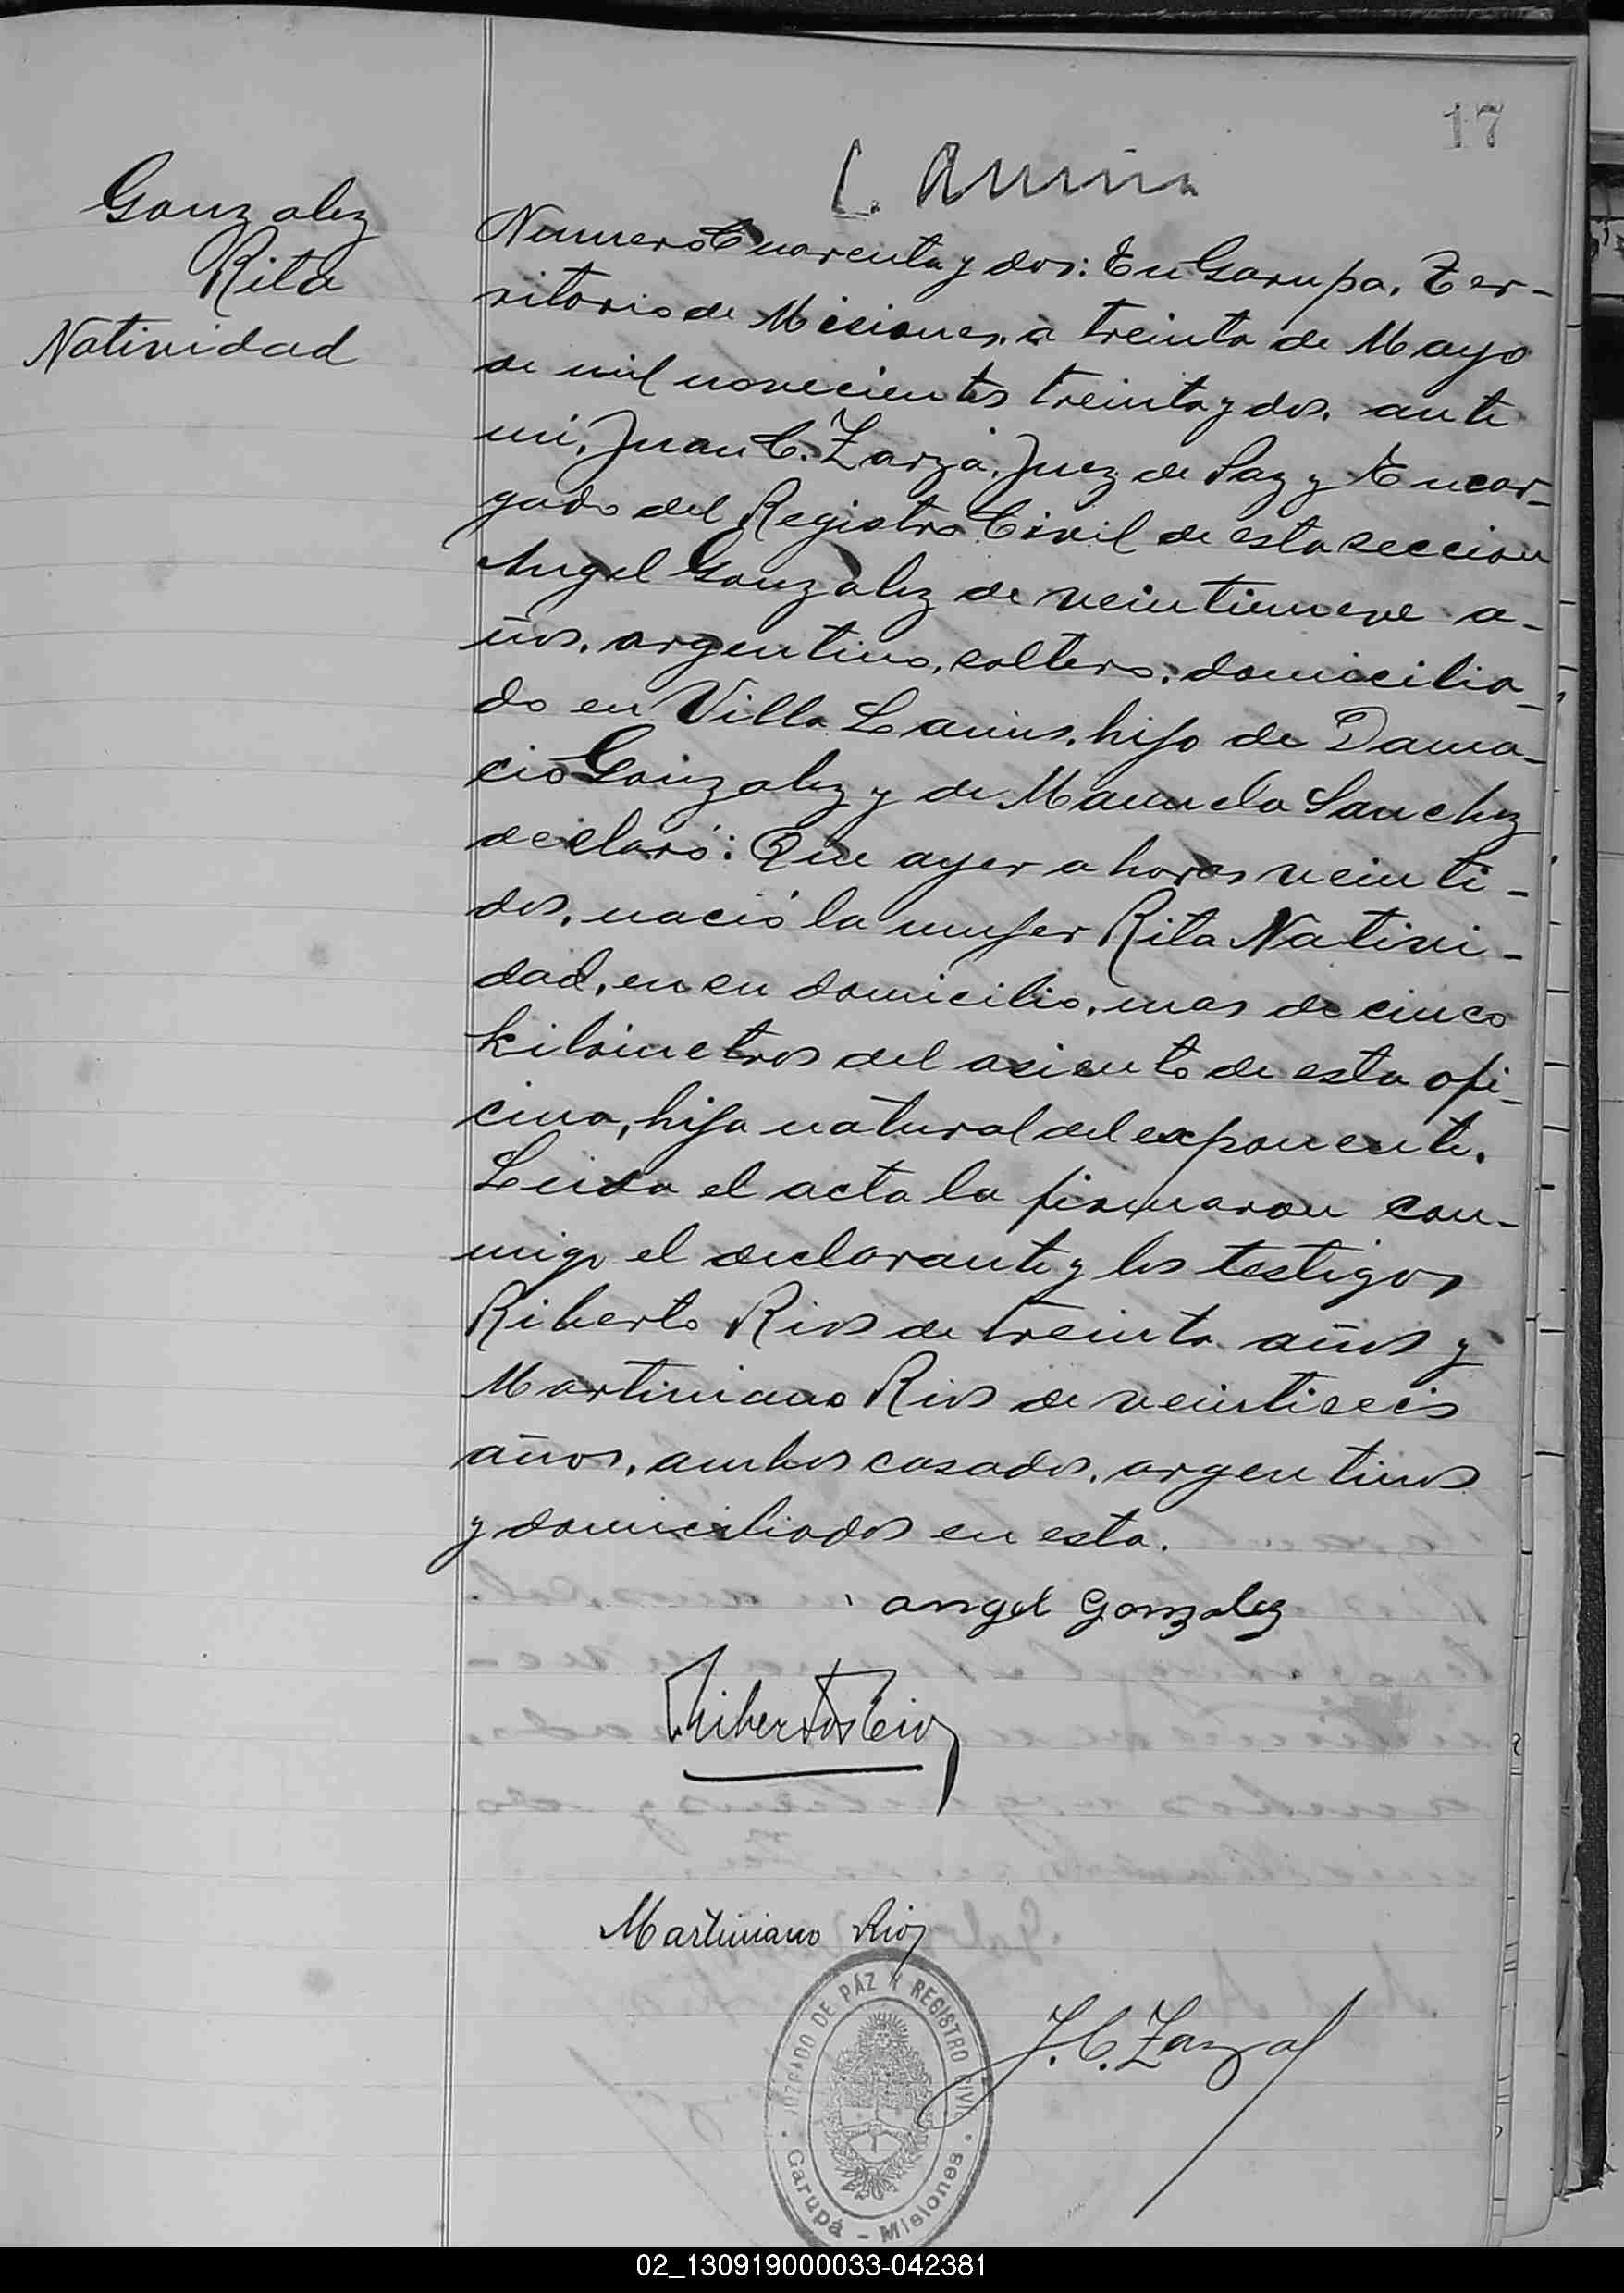 17
Gonzalez
Rita
Natividad
Numero Cuarenta y dos: En Garupa, Ter-
ritorio de Misiones, a treinta de Mayo
de mil novecientos treinta y dos, ante
mi, Juan C. Zarza, Juez de Paz y Encar-
gado del Registro Civil de esta seccion
Angel Gonzalez de veintinueve a-
ños, argentino, soltero, domicilia-
do en Villa Lanus, hijo de Dama-
cio Gonzalez y de Manuela Sanchez
declaró: Que ayer a horas veinti-
dos, nació la mujer Rita Nativi-
dad, en su domicilio, mas de cinco
kilometros del asiento de esta ofi-
cina, hija natural del exponente.
Leida el acta la firmaron con-
migo el declarante y los testigos
Riberto Rios de treinta años y
Martiniano Rios de veintiseis
años, ambos casados, argentinos
y domiciliados en esta.
angel Gonzalez
Riberto Rios
Martiniano Rios
JUZGADO DE PAZ Y REGISTRO CIVIL
Garupá - Misiones
J. C. Zarza
02_130919000033-042381